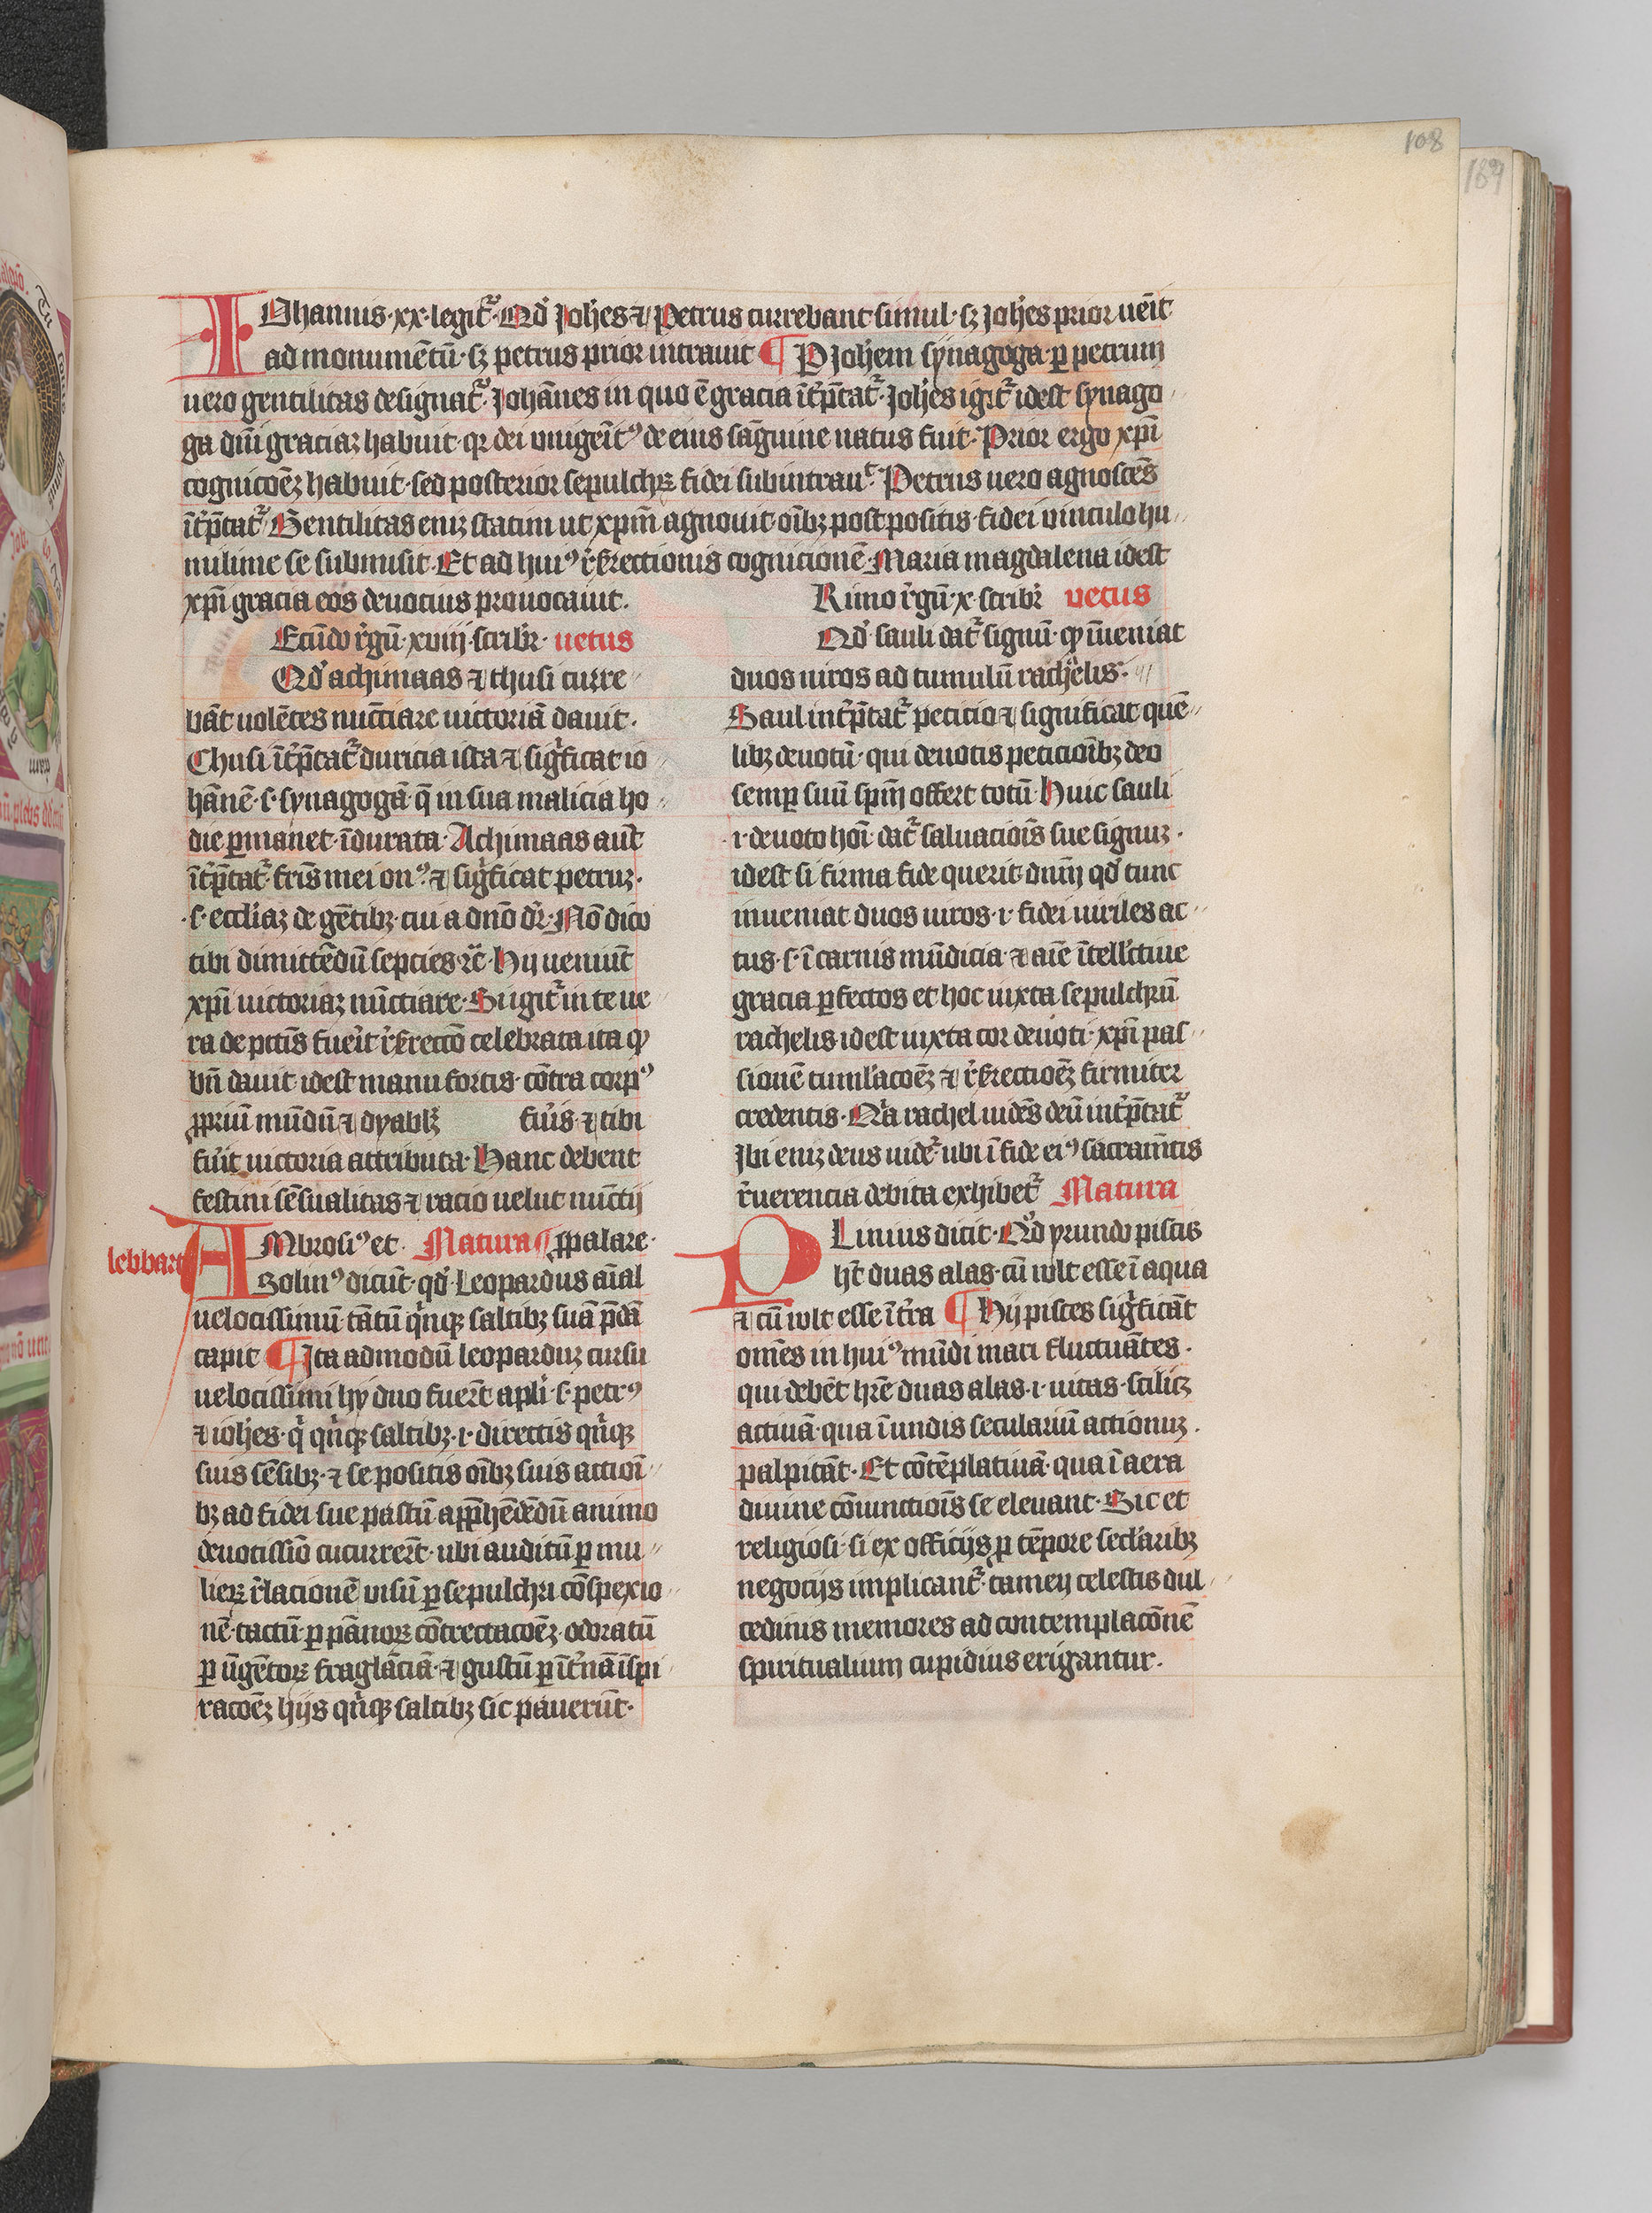 108
109
IOhannis·xx·legit᷑·Qd̕ Joh̅es ⁊ Petrus currebant simul·sꝫ Joh̅es prior ue̅it
ad monume̅tu̅·sꝫ petrus prior intrauit ¶ P Joh̅em synagoga·ꝑ petrum
uero gentilitas designat᷑·Joha̅nes in quo e̅ gracia i̅t̕p̅tat᷑·Joh̅es igit᷑ idest synago
ga diu̅ graciaꝫ habuit·qꝛ dei unigeīt⁹ de eius sa̅guine natus fuit·Prior ergo xp̅i
cognicoe̅ꝫ habuit·sed posterior sepulchꝝ fidei subintrau᷑·Petrus uero agnosce̅s
i̅t̕p̅tat᷑·Gentilitas eniꝫ statim ut xp̅m agnouit oi̅bꝫ postpositis·fidei uinculo hu
milime se submisit·Et ad hui⁹ r̕srectionis cognicione̅·Maria magdalena idest
xp̅i gracia eos deuocius prouocauit.
Ecu̅do r̕gu̅·xviij·scribꝛ̕·uetus
Qd̕ achimaas ⁊ chusi curre
ba̅t uole̅tes nu̅cciare uictoria̅ dauit·
Chusi i̅t̕p̅tat᷑ duricia ista ⁊ sig̕ficat io
ha̅ne̅·s·synagoga̅ q̅ in sua malicia ho
die ꝑmanet·i̅durata·Achimaas aut̅
i̅t̕p̅tat᷑ fr̅is mei on⁹·⁊ sig̕ficat petruꝫ·
·s·eccl̕iaꝫ de ge̅tibꝫ·cui a dn̅o dꝛ̕·No̅ dico
tibi dimitte̅du̅ septies·⁊c̅·Hij ueniu̅t
xp̅i uictoriaꝫ nu̅cciare·Si igit᷑ in te ue
ra de pctis̅ fueı̕t r̕srecco̅ celebrata ita ꝙ
bn̅ dauit·idest manu fortis·co̅tra corp⁹
ꝓpriu̅ mu̅du̅ ⁊ dyablꝫ̕ fu̕is·⁊ tibi
fu̕it uictoria attributa·Hanc debent
festini se̅sualitas ⁊ racio uelut nu̅ctij
lebbart
AMbrosi⁹ et· Natura ¶ ꝓpalare·
Solin⁹ dicu̅t·qd̕·Leopardus ai̅al
uelocissimu̅·ta̅tu̅ qi̕nqꝫ saltibꝫ sua̅ p̅da̅
capit ¶ Ita admodu̅ leoparduꝫ cursu
uelocissimi hy duo fuere̅t apl̕i·s·petr⁹
⁊ ioh̅es·q̕ qi̕nqꝫ saltibꝫ·ı·directis qi̕nqꝫ
suis se̅sibꝫ·⁊ se positis oi̅bꝫ suis actioi̅
bꝫ ad fidei sue pastu̅ app̅he̅de̅du̅ animo
deuotissi̅o cucurrere̅t·ubi auditu̅ ꝑ mu
lieꝝ r̕lacione̅ uisu̅ ꝑ sepulchri co̅spexio
ne̅·tactu̅·ꝑ pa̅noꝝ co̅trectacoe̅ꝫ·odoratu̅
ꝑ u̅ge̅toꝝ fragla̅cia̅·⁊ gustu̅ ꝑ i̅t̕na̅ i̅spi
racoe̅ꝫ hijs qi̕nqꝫ saltibꝫ sic pauerūt·
Rimo r̕gu̅·x·scribꝛ̕ uetus
Qd̕·sauli dat᷑ signu̅·ꝙ i̅ueniat
duos uiros ad tumulu̅ rachelis·
Saul int̕p̅tat᷑ peticio ⁊ significat que̅
libꝫ deuotu̅·qui deuotis peticioi̅bꝫ deo
semꝑ suu̅ sp̅m̅ offert totu̅·Huic sauli
·ı·deuoto hoi̅·dat᷑ saluacioi̅s sue signuꝫ·
idest si firma fide querit·dn̅m̅ qd̕ tunc
inueniat duos uiros·ı·fidei uiriles ac
tus·s·i̅ carnis mu̅dicia·⁊ aie̅ i̅tell̕ctiue
gracia ꝑfectos et hoc iuxta sepulchru̅
rachelis·idest iuxta cor deuoti·xp̅i pas
sione̅ tuml̕acoe̅ꝫ ⁊ r̕srectioe̅ꝫ firmiter
credentis·Qa̕ rachel uide̅s deu̅ int̕p̅tat᷑
Ibi eniꝫ deus uide᷑·ubi i̅ fide ei⁹ sacram̅tis
r̕uerencia debita exhibet᷑ Natura
PLinius dicit·Qd̕ yrundo piscis
ht̅ duas alas·cu̅ uolt esse i̅ aqua
⁊ cu̅ uolt esse i̅ t̕ra ¶ Hij pisces sig̕fica̅t
om̅es in hui⁹ mu̅di mari fluctua̅tes·
qui debe̅t hr̅e duas alas·ı·uitas·scilicꝫ
actiua̅·qua i̅ undis seculariu̅ actionuꝫ·
palpita̅t·Et co̅te̅platiua̅·qua i̅ aera
diuine co̅iunctioi̅s se eleuant·Sic et
religiosi·si ex officijs ꝑ te̅pore secl̕aribꝫ
negocijs implicant᷑·tamen celestis dul
cedinis memores ad contemplaco̅ne̅
spiritualium cupidius erigantur.